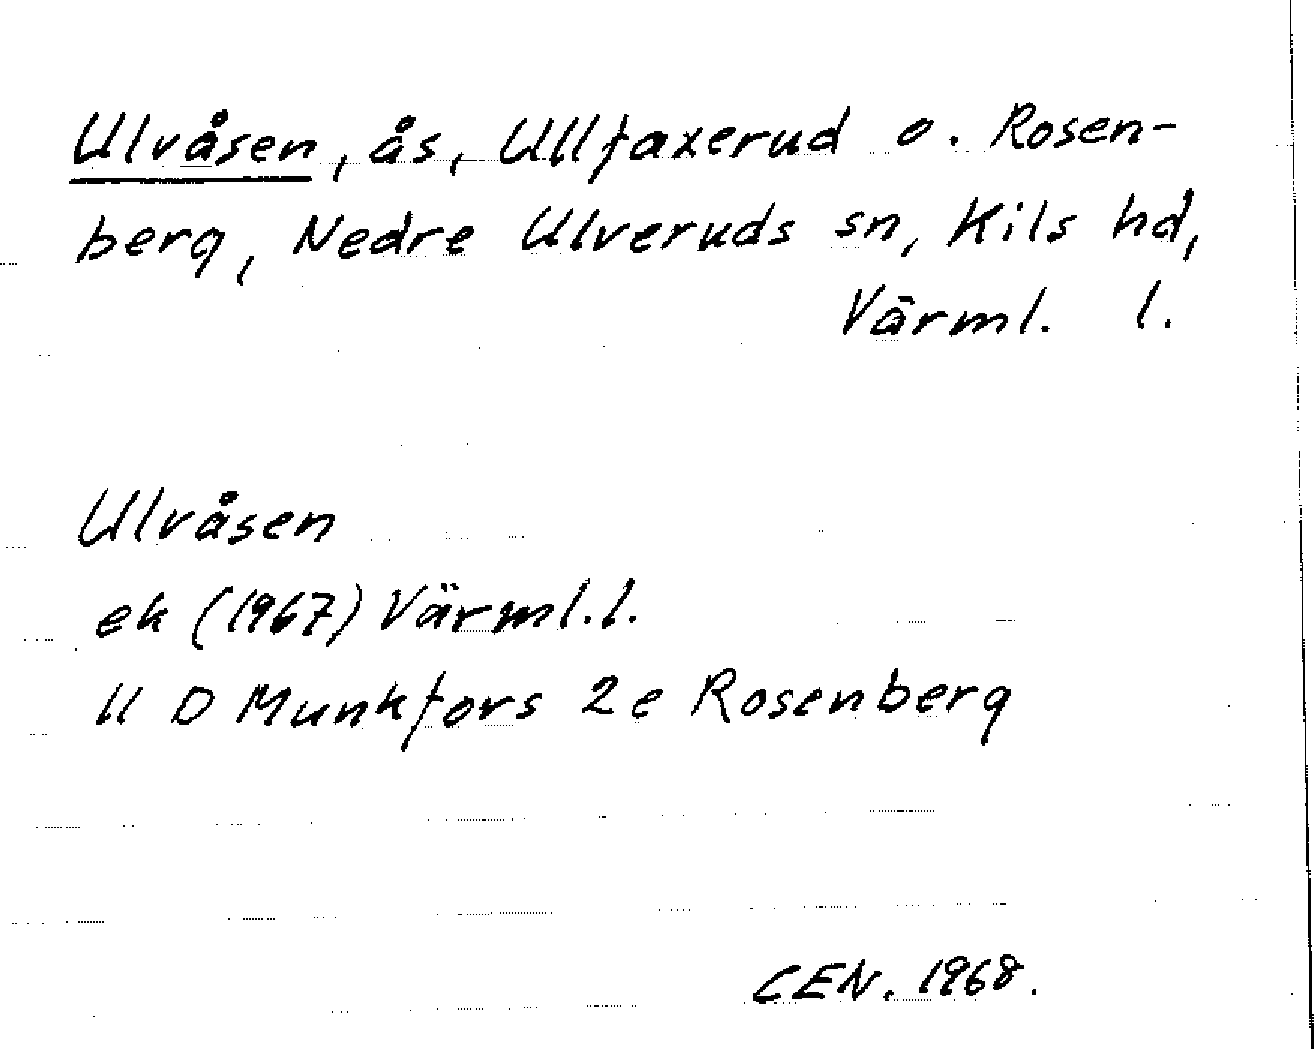 Ulvåsen, ås, Ullfaxerud o. Rosen-
berg, Nedre Ulveruds sn, Kils hd,
Värml. l.
Ulvåsen
ek (1967) Värml.l.
11 D Munkfors 2e Rosenberg
CEN. 1968.